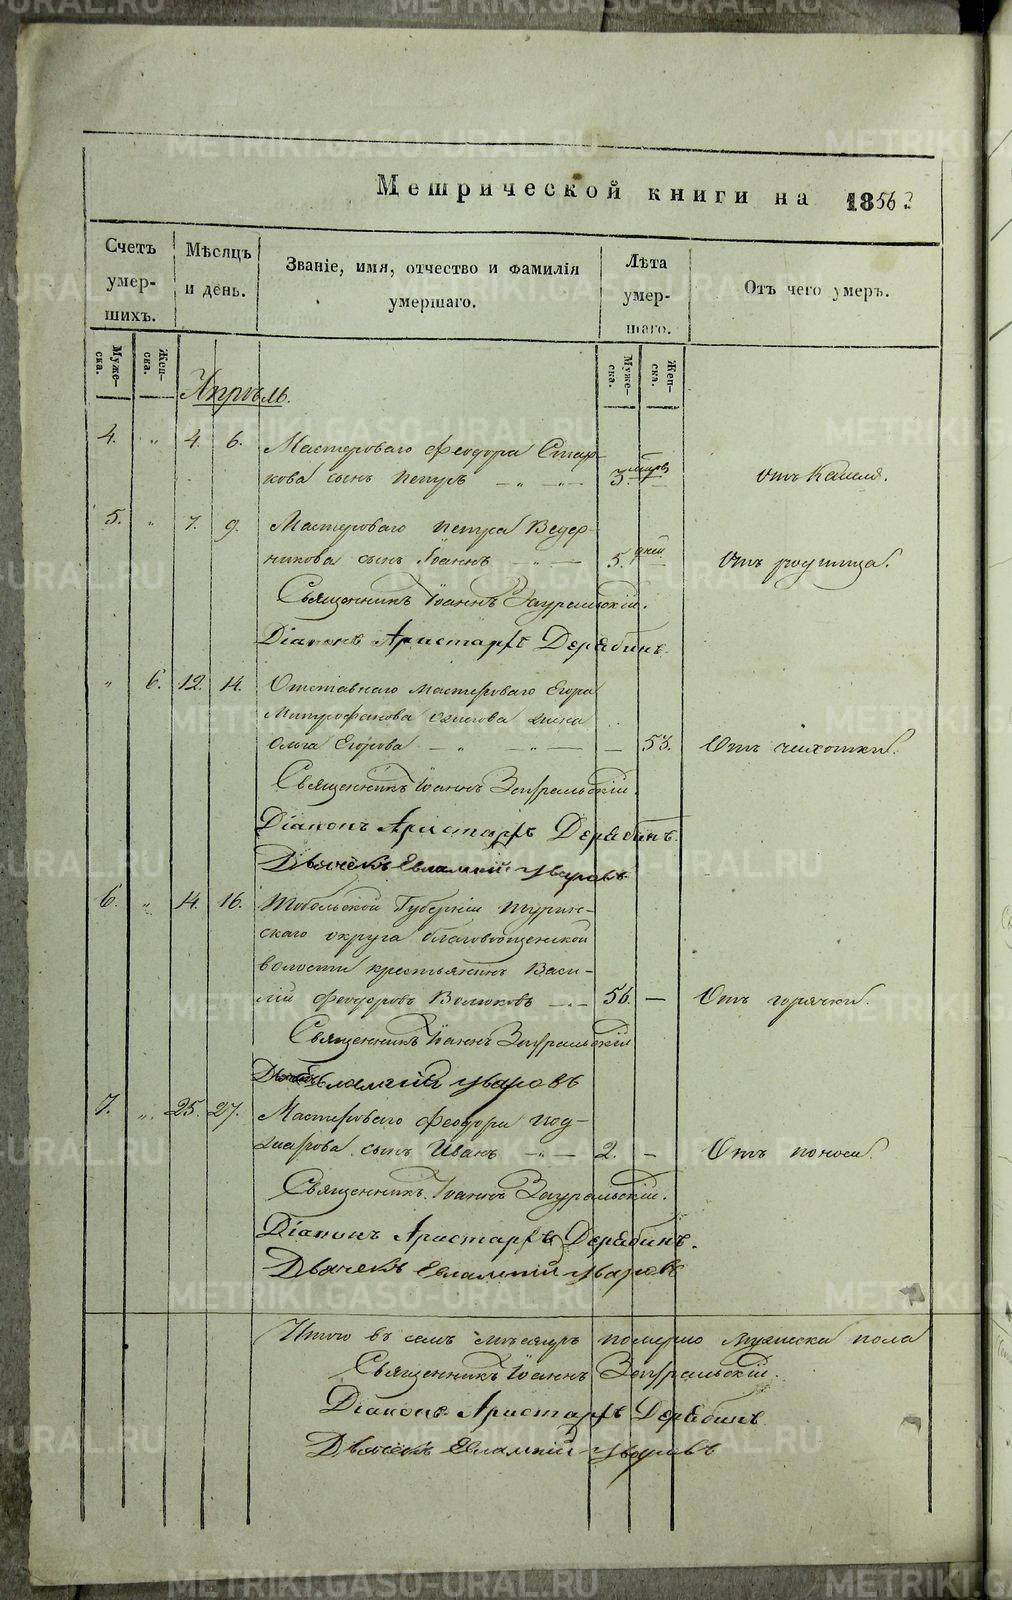 Метрической книги на 1856
Счетъ умер- шихъ.
Мѣсяцъ и день.
Званіе, имя, отчество и фамилія умершаго.
Лѣта умер- шаго.
Отъ чего умеръ.
Муже- ска.
Жен- ска.
Муже- ска.
Жен- ска.
Апрѣль.
4. " 4. 6. Мастероваго Феодора Стар-
кова сынъ Петръ — " — 3. Отъ кашля.
5. " 7. 9. Мастероваго Петра Ведер-
никова сынъ Іоаннъ — " — 5. дней Отъ родимца.
Священникъ Іоаннъ Зауральскій.
Діаконъ Аристархъ Дерябинъ.
" 6. 12. 14. Отставнаго мастероваго Егора
Митрофанова жена
Ольга Егорова — " — " — — 53. Отъ чихотки.
Священникъ Іоаннъ Зауральскій.
Діаконъ Аристархъ Дерябинъ.
Дьячекъ Евлампій Уваровъ
6. " 14. 16. Тобольской Губерніи Турин-
скаго округа Благовѣщенской
волости крестьянинъ Васи-
лій Феодоровъ Волюковъ — " — 56. — Отъ горячки.
Священникъ Іоаннъ Зауральскій
Евлампій Уваровъ
7. " 25. 27. Мастероваго Феодора Под-
сынъ Иванъ — " — 2. — Отъ поноса.
Священникъ Іоаннъ Зауральскій.
Діаконъ Аристархъ Дерябинъ.
Дьячекъ Евлампій Уваровъ
Итого въ семъ мѣсяцѣ померло мужеска пола
Священникъ Іоаннъ Зауральскій.
Діаконъ Аристархъ Дерябинъ
Дьячекъ Евлампій Уваровъ
METRIKI.GASO-URAL.RU